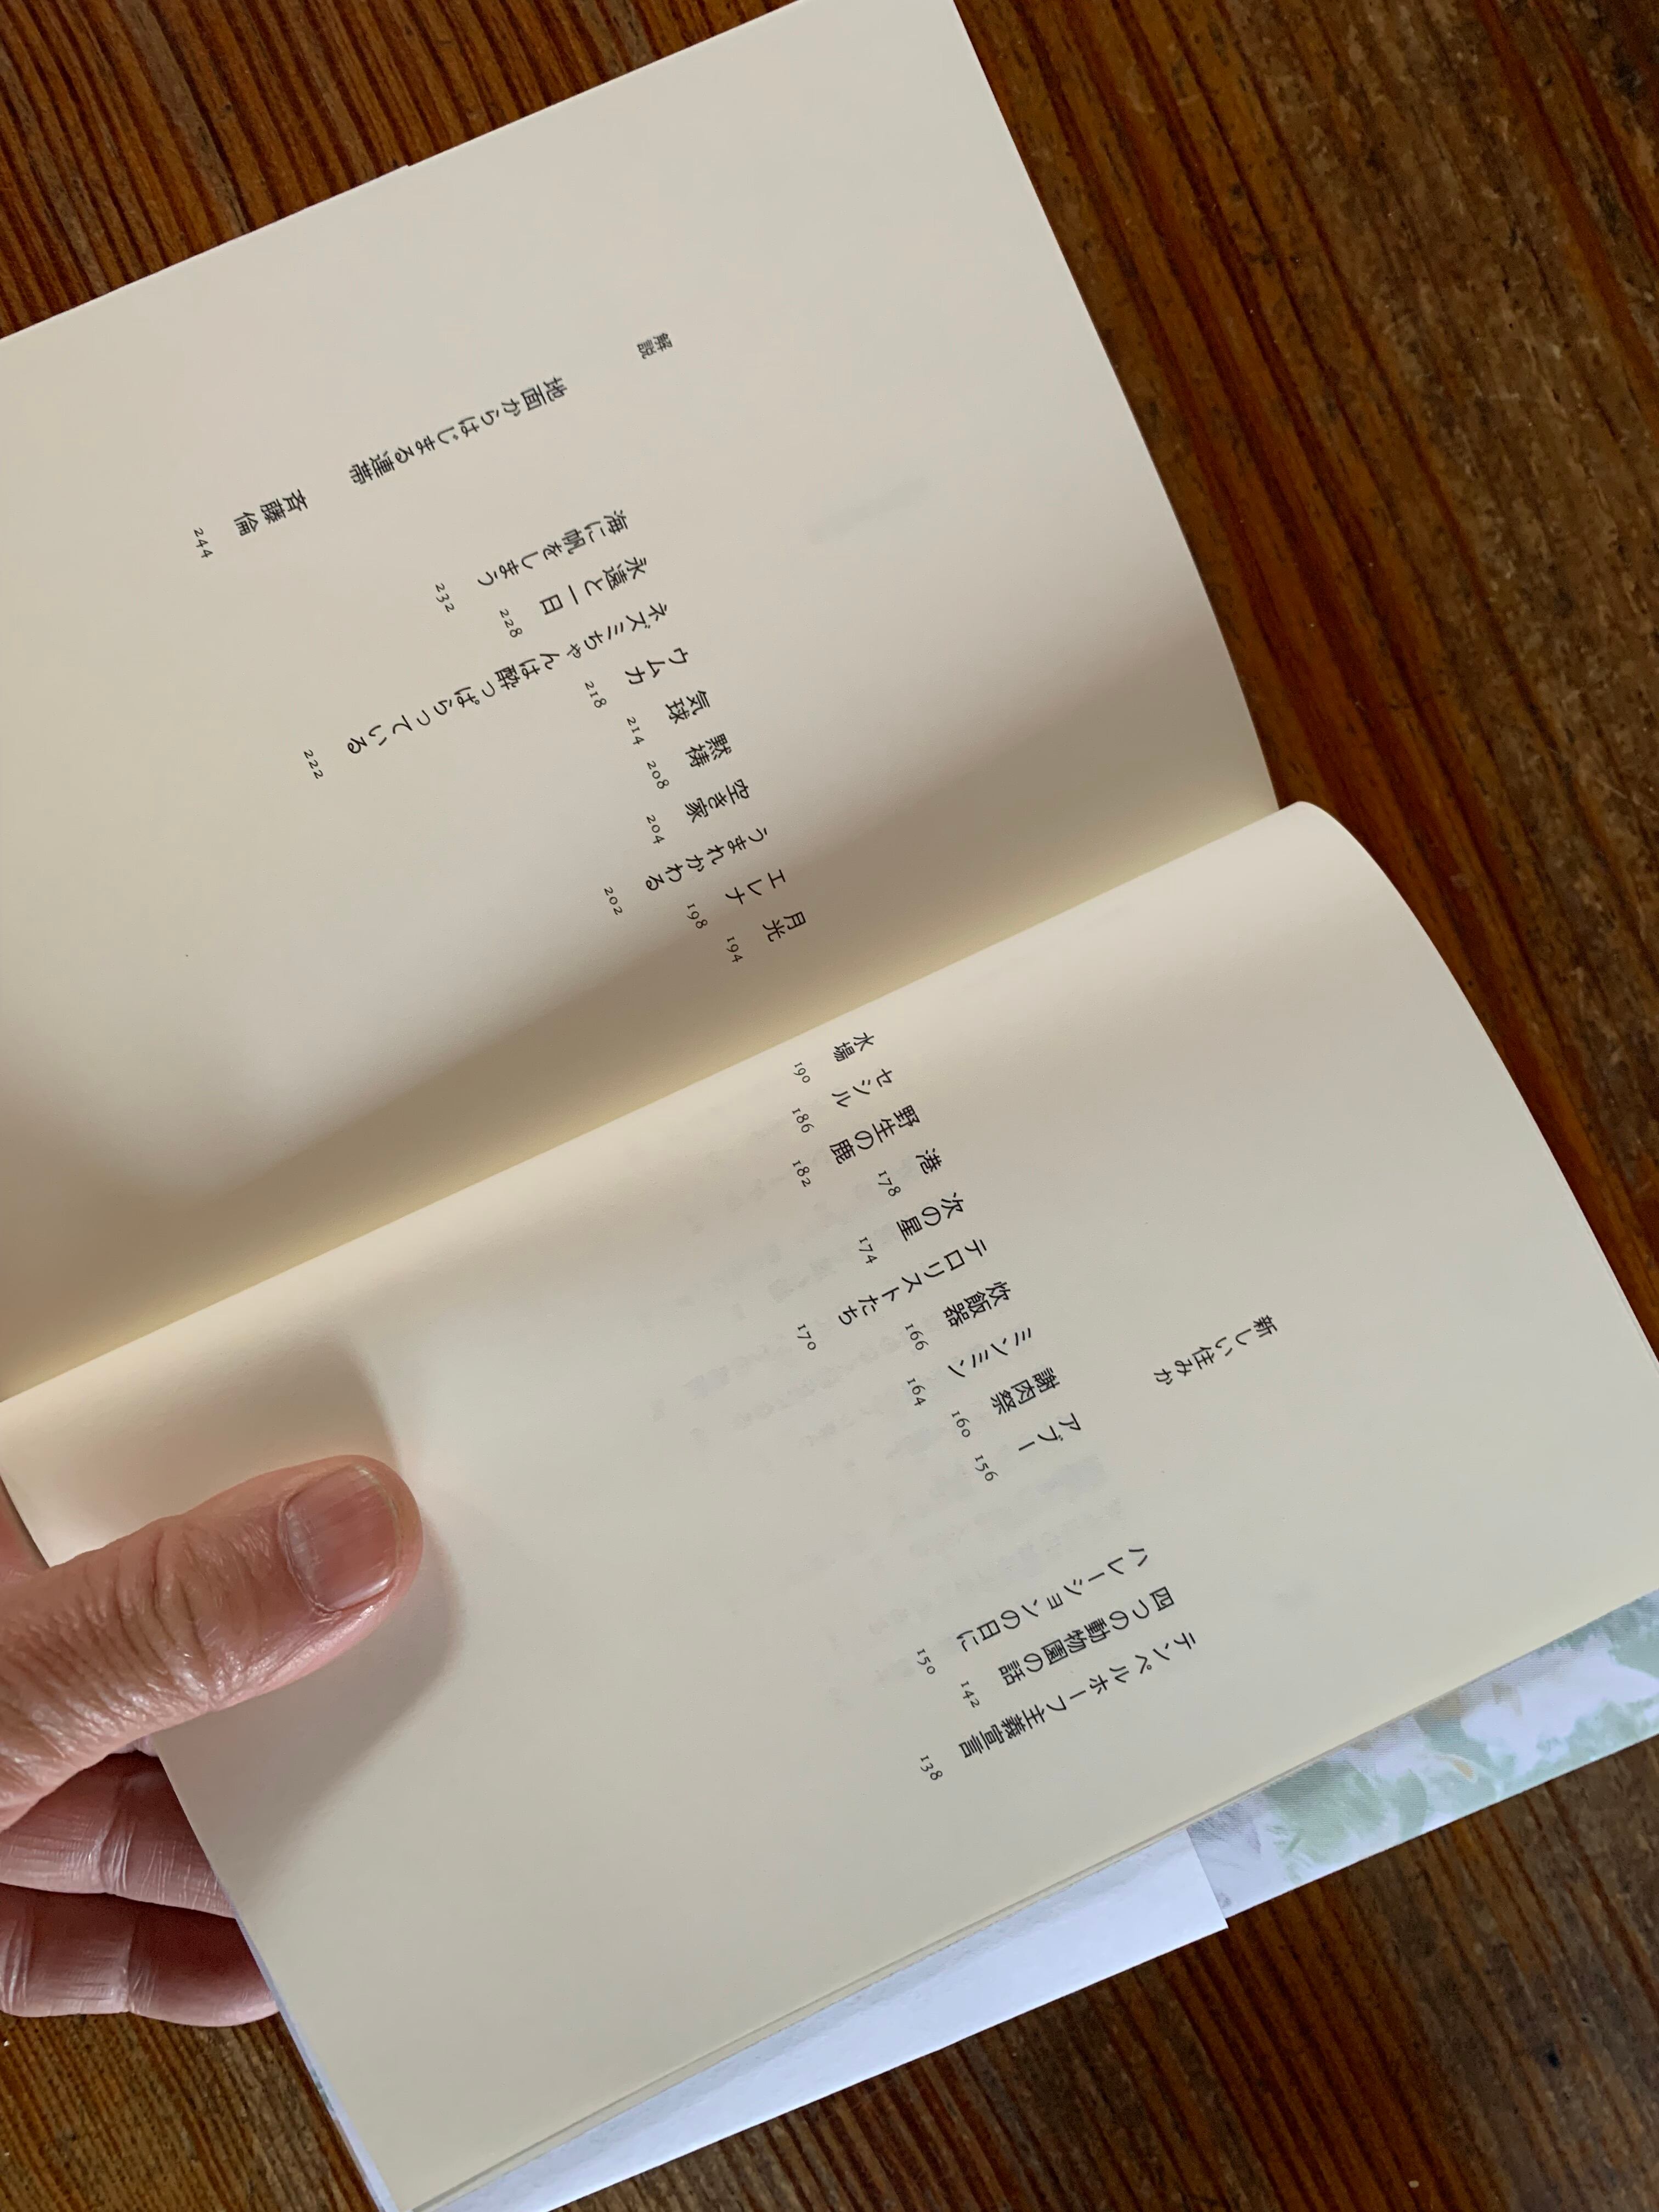 テンペルホーフ主義宣言 138
四つの動物園の話 142
ハレーションの日に 150
新しい住みか
アブー 156
謝肉祭 160
ミンミン 164
炊飯器 166
テロリストたち 170
次の星 174
港 178
野生の鹿 182
セシル 186
水場 190
月光 194
エレナ 198
うまれかわる 202
空き家 204
黙祷 208
気球 214
ウムカ 218
ネズミちゃんは酔っぱらっている 222
永遠と一日 228
海に帆をしまう 232
解説 地面からはじまる連帯 斉藤倫 244